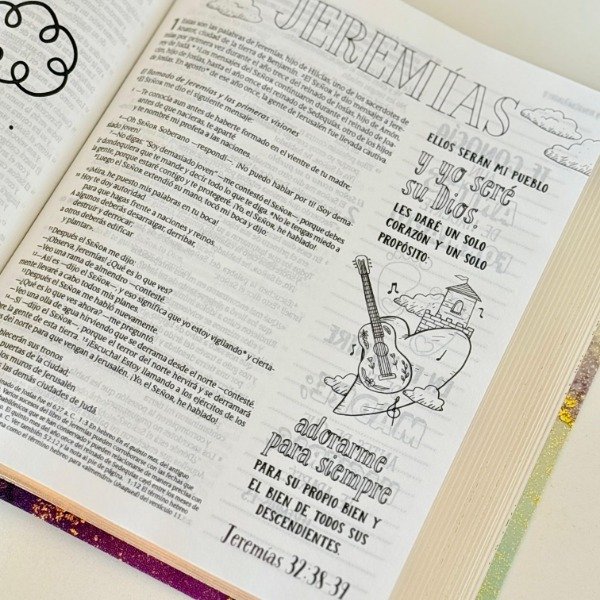 JEREMÍAS
1 Estas son las palabras de Jeremías, hijo de Hilcías, uno de los sacerdotes de
Anatot, ciudad de la tierra de Benjamín. ²El SEÑOR le dio mensajes a Jere-
mías por primera vez durante el año trece del reinado de Josías, hijo de Amón,
rey de Judá.* ³Los mensajes del SEÑOR continuaron durante el reinado de Joa-
cim, hijo de Josías, hasta el año once del reinado de Sedequías, otro de los hijos
de Josías. En agosto* de ese año once, la gente de Jerusalén fue llevada cautiva.
El llamado de Jeremías y las primeras visiones
⁴El SEÑOR me dio el siguiente mensaje:
⁵—Te conocía aun antes de haberte formado en el vientre de tu madre;
antes de que nacieras, te aparté
y te nombré mi profeta a las naciones.
⁶—Oh SEÑOR Soberano —respondí—. ¡No puedo hablar por ti! ¡Soy dema-
siado joven!
⁷—No digas: "Soy demasiado joven" —me contestó el SEÑOR—, porque debes
ir dondequiera que te mande y decir todo lo que te diga. ⁸No le tengas miedo a
la gente, porque estaré contigo y te protegeré. ¡Yo, el SEÑOR, he hablado!
⁹Luego el SEÑOR extendió su mano, tocó mi boca y dijo:
«¡Mira, he puesto mis palabras en tu boca!
¹⁰ Hoy te doy autoridad
para que hagas frente a naciones y reinos.
A algunos deberás desarraigar, derribar,
destruir y derrocar;
a otros deberás edificar
y plantar».
¹¹Después el SEÑOR me dijo:
—¡Observa, Jeremías! ¿Qué es lo que ves?
—Veo una rama de almendro —contesté.
¹²—Así es —dijo el SEÑOR—, y eso significa que yo estoy vigilando* y cierta-
mente llevaré a cabo todos mis planes.
¹³Después el SEÑOR me habló nuevamente.
—¿Qué es lo que ves ahora? —me preguntó.
—Veo una olla de agua hirviendo que se derrama desde el norte —contesté.
¹⁴—Sí —dijo el SEÑOR—, porque el terror del norte hervirá y se derramará
la gente de esta tierra. ¹⁵¡Escucha! Estoy llamando a los ejércitos de los
del norte para que vengan a Jerusalén. ¡Yo, el SEÑOR, he hablado!
sus tronos
puertas de la ciudad.
los muros de Jerusalén
las demás ciudades de Judá.
ELLOS SERÁN MI PUEBLO
y yo seré
su Dios.
LES DARÉ UN SOLO
CORAZÓN Y UN SOLO
PROPÓSITO:
adorarme
para siempre
PARA SU PROPIO BIEN Y
EL BIEN DE TODOS SUS
DESCENDIENTES.
Jeremías 32:38-39